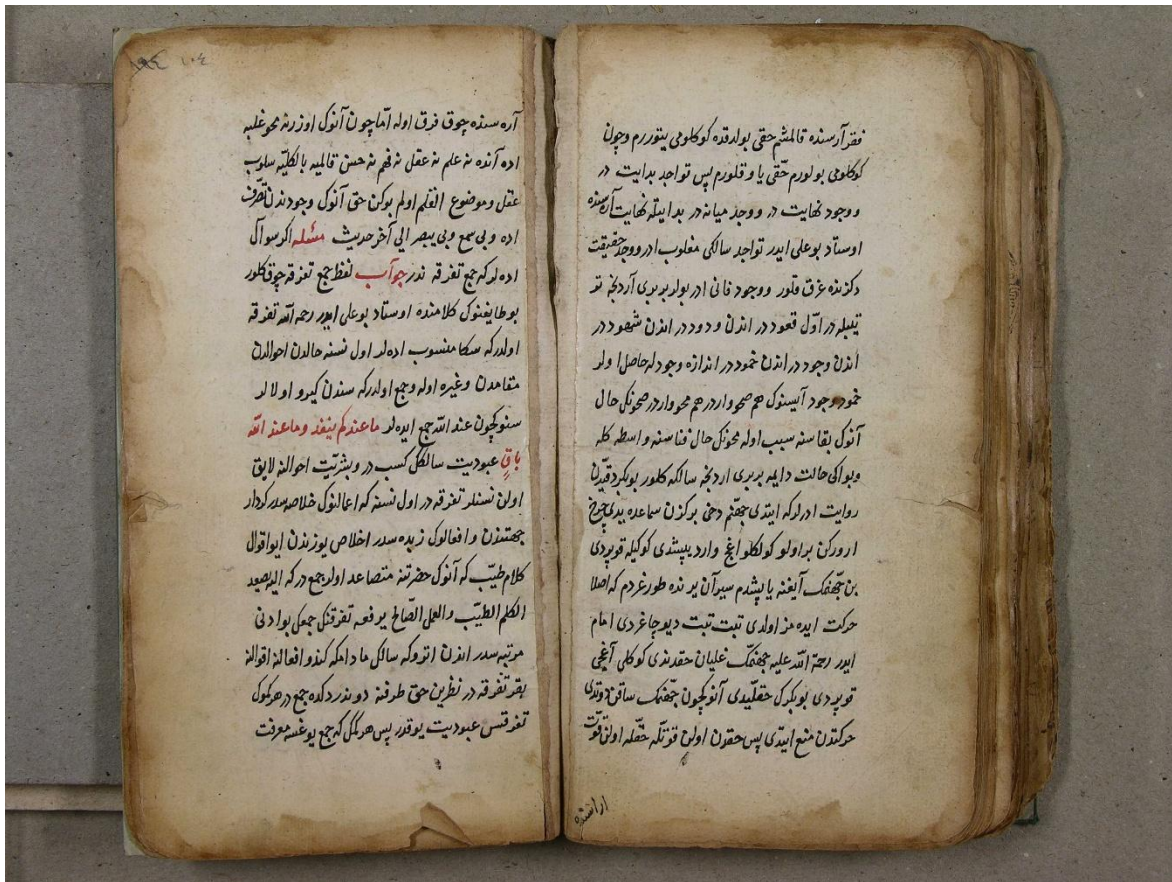 فقر آرسنده قالمشم حقی بولدقده کوکلومی یتوررم وچون
کوکلومی بولورم حقّی یاوقلورم پس تواجد بدایت در
ووجود نهایت در ووجد میانه در بدایتله نهایت آره سنده
اوستاد بوعلی ایدر تواجد سالکی مغلوب ادر ووجد حقیقت
دکزنده غرق قلور ووجود فانی ادر بولر بربری آردنجه تر
تیبله در اوّل قعود در اندن ورود در اندن شهود در
اندن وجود در اندن خمود در اندازه وجودله حاصل اولو
خمود وجود آیسنوک هم صحو واردر هم محو واردر صحونکل حال
آنوک بقاسنه سبب اوله محونکل حال فناسنه واسطه کله
وبو اکی حالت دایمه بربری اردنجه سالکه کلور بوبکر دقیدن
روایت ادرلرکه ایتدی جهنم دخی برکزن سماعده یدی چرخ
ارورکن بر اولو کولکلو اغج واردی یپشدی کوکیله قوپردی
بن جهّنمک آیغنه یاپشدم سیرآن یرنده طورغردم که اصلا
حرکت ایده مز اولدی تبت تبت دیو چاغردی امام
ایدر رحمة اللّه علیه جهنمک غلیان حقدندی کوکلی آغجی
قوپردی بوبکرک حقلیدی آنوکچون جهّنمک ساقن دوتدی
حرکتدن منع ایتدی پس حقدن اولن قوتله حقّله اولن قوّت
اراسنده
١٠٤
آره سنده چوق فرق اوله امّا چون آنوک اوزرنه محو غلبه
اده آنده نه علم نه عقل نه فهم نه حسن قالمیه بالکلیّه سلوب
عقل وموضوع القلم اولم بوکن حق آنوک وجودندن تصّرف
اده وبی سمع وبی یبصر الی آخر حدیث مسٔله اکر سوآل
اده لر که جمع تفرقه ندر جوآب لفظ جمع تفرقه چوق کلور
بوطایفنوک کلامنده اوستاد بوعلی ایدر رحمه اللّه تفرقه
اولدر که سکا منسوب اده لر اول نسنه حالدن احوالدن
مقامدن وغیره اوله وجمع اولدر که سندن کیرو اولا لر
سنوکچون عند اللّه جمع ایده لر ما عندکم ینفذ وما عند اللّه
باقٍ عبودیت سالکل کسب در وبشریّت احوالنه لایق
اولن نسنلر تفرقه در اول نسنه که اعمالنوک خلاصه سدر کردار
جهتندن وافعالوک زبده سدر اخلاص یوزندن ایو اقوال
کلام طیّب که آنوک حضرتنه متصاعد اولور جمع در که الیه یصعد
الکلم الطیّب والعمل الصّالح یرفعه تفرقنکل جمعل بو ادنی
مرتبه سدر اندن اتروکه سالکل مادامکه کندو افعالنه اقوالنه
بقر تفرقه در نظرین حق طرفنه دوندردکده جمع در هر کموک
تفرقسی عبودیت یوقدر پس هر کمل که جمع یوغسه معرفت